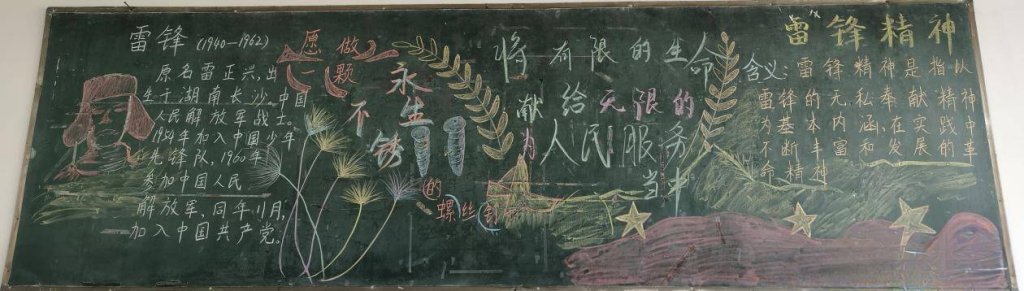 雷锋(1940—1962)
原名雷正兴,出
生于湖南长沙。中国
人民解放军战士。
1954年加入中国少年
先锋队,1960年
参加中国人民
解放军,同年11月,
加入中国共产党。
愿做
一颗
永
不生
锈
的
螺丝钉
将有限的生命
献给无限的
为人民服务
当中
雷锋精神
含义:雷锋精神是指以
雷锋的无私奉献精神
为基本内涵,在实践中
不断丰富和发展的革
命精神